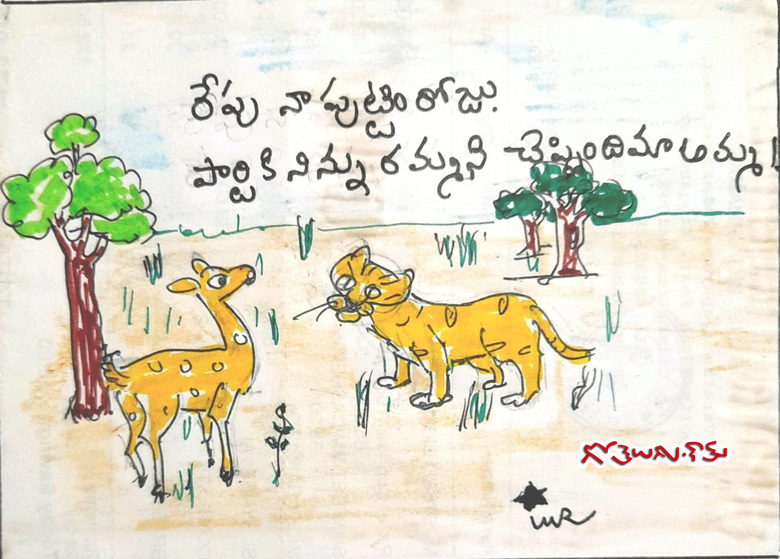 రేపు నా పుట్టిం రోజు.
పార్టీకి నిన్ను రమ్మని చెప్పింది మా అమ్మ!
గోతెలుగు.కామ్